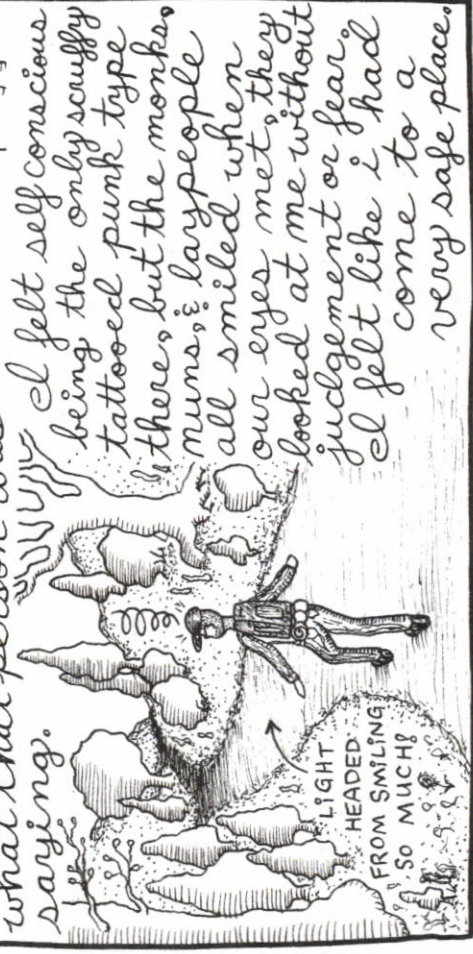 what that person was
saying.
I felt self conscious
being the only scruffy
tattooed punk type
there, but the monks,
nuns, & laypeople
all smiled when
our eyes met, they
looked at me without
judgement or fear.
I felt like i had
come to a
very safe place.
LIGHT
HEADED
FROM SMILING
SO MUCH!